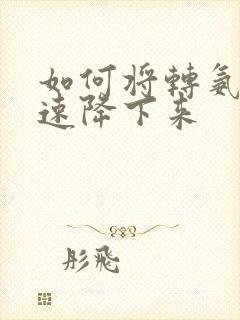 如何将轉氨
速降下来
彤飛